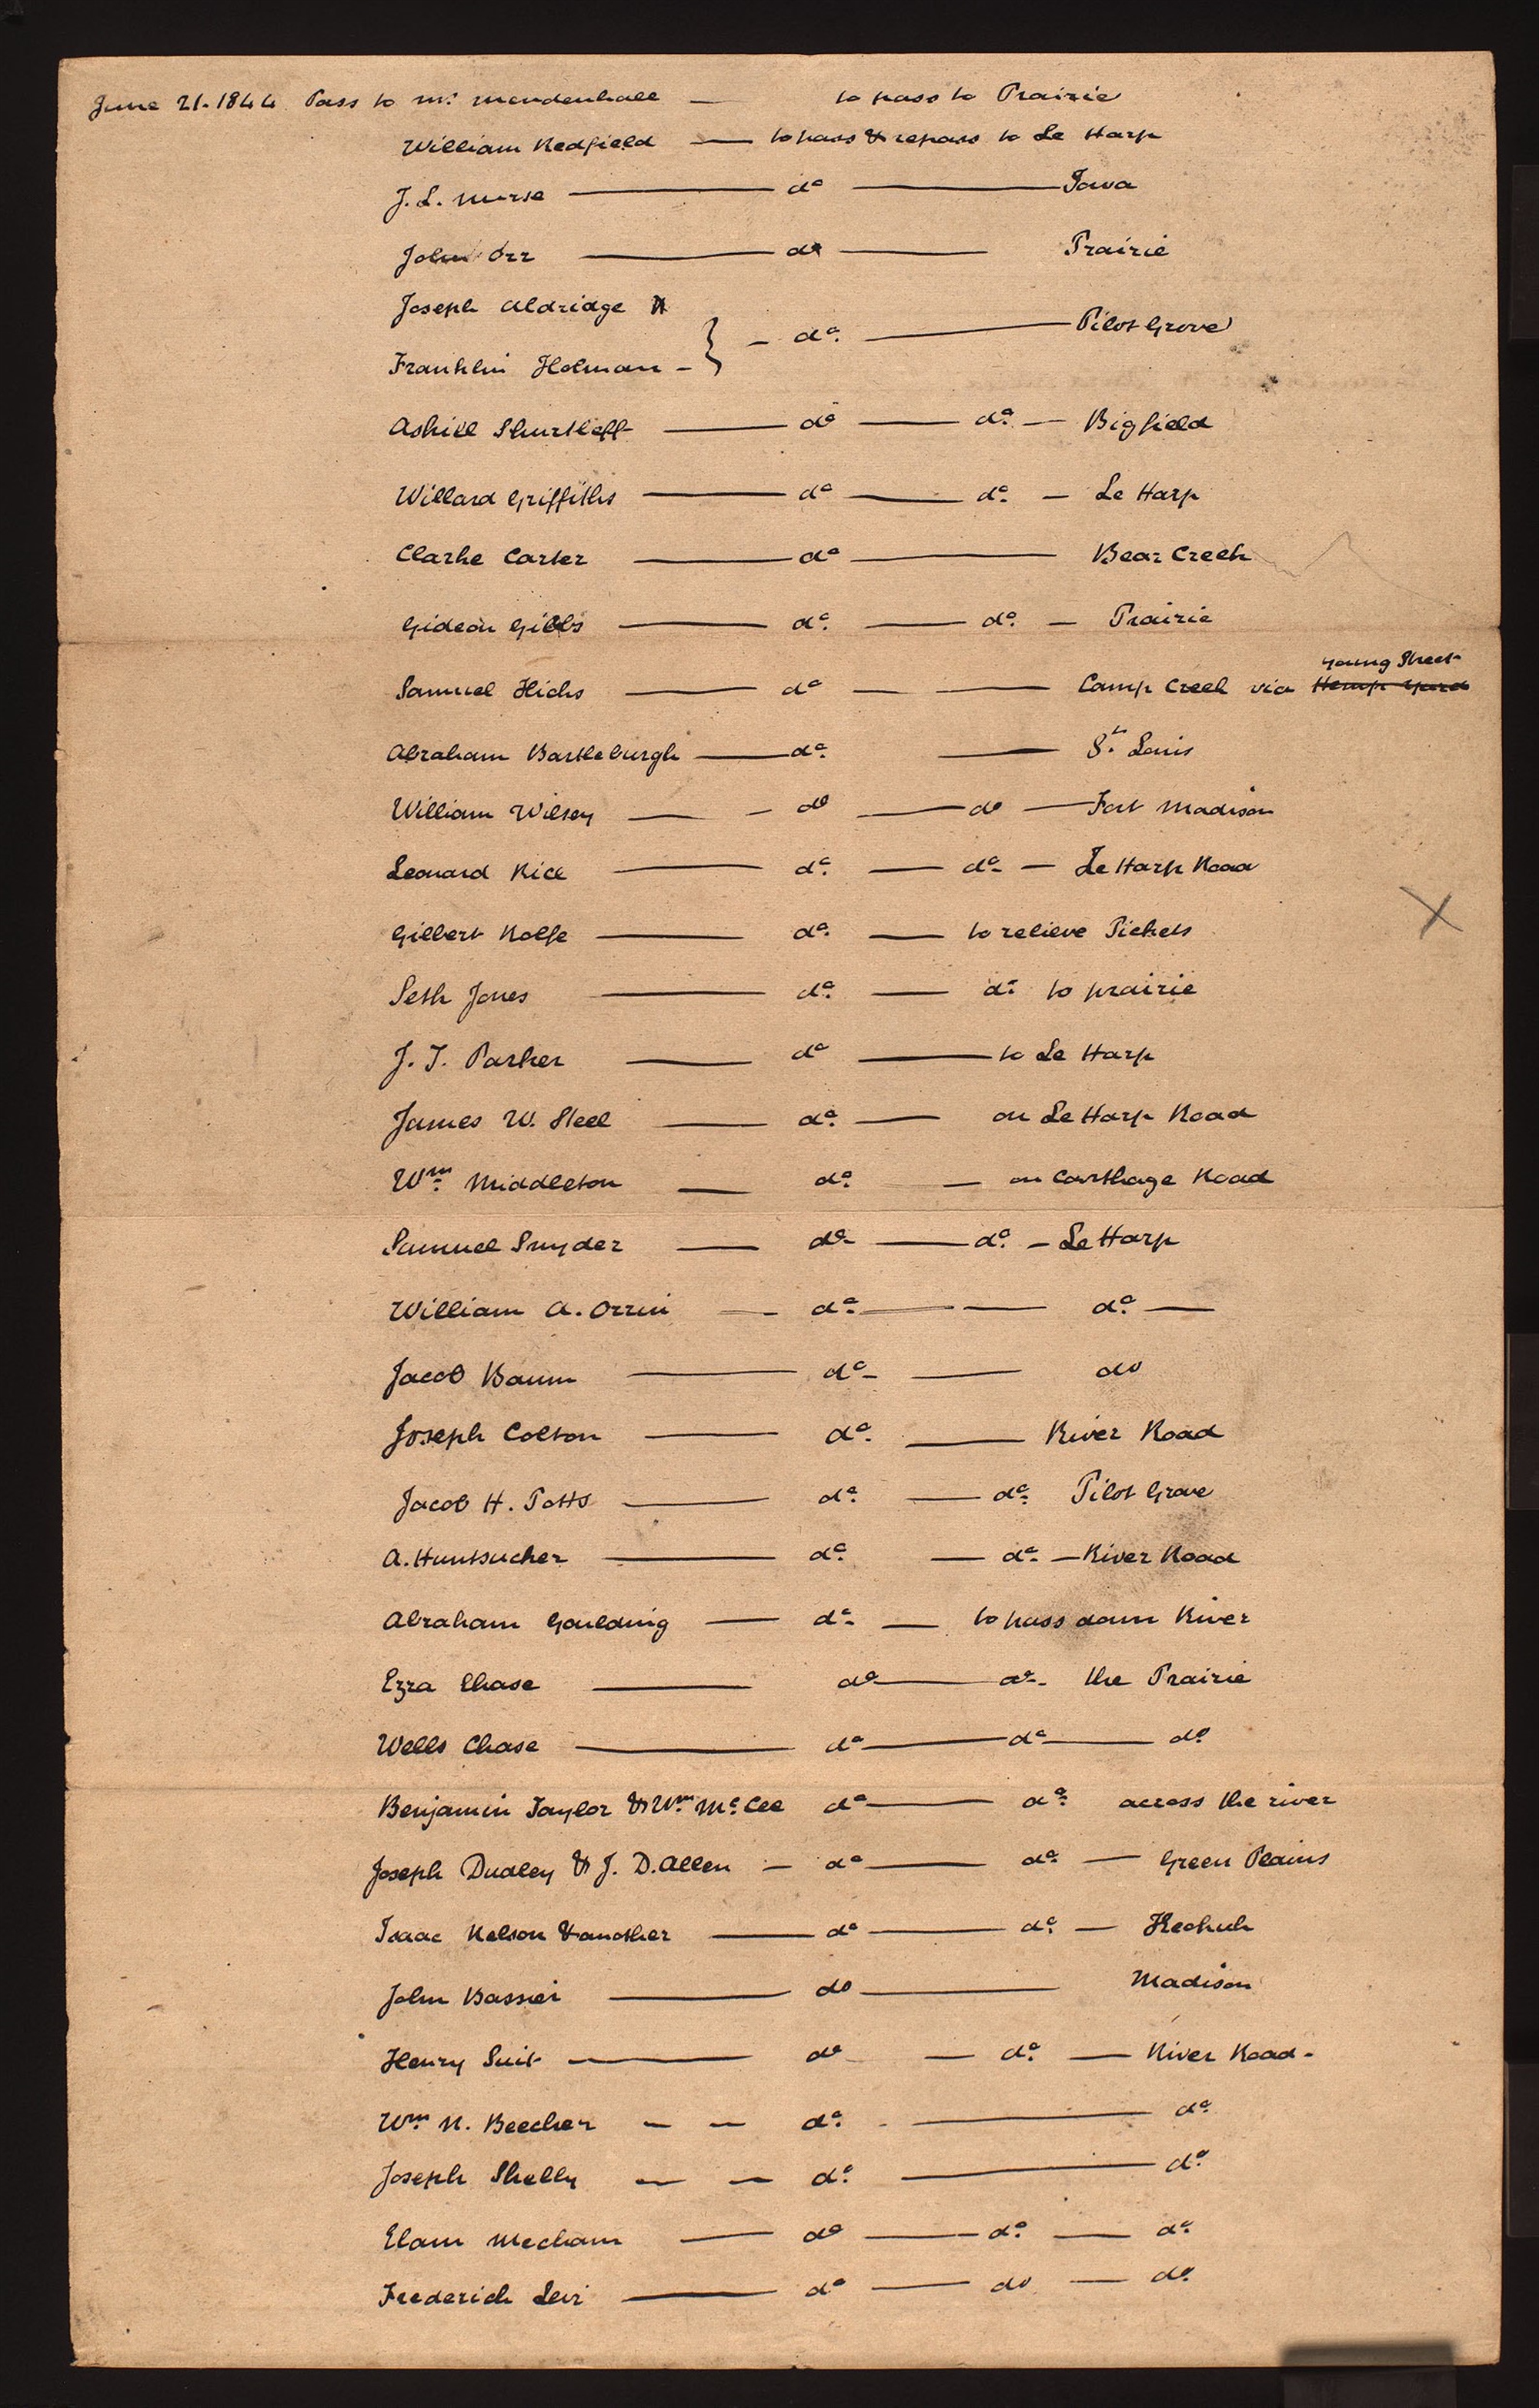 June 21. 1844 Pass to Mr. Mendenhall — to pass to Prairie
William Redfield — to pass & repass to Le Harp
J. L. Nurse — do — Iowa
John Orr — do — Prairie
Joseph Aldridge &
} — do. — Pilot Grove
Franklin Holman —
Ashill Shurtleff — do — do. — Bigfield
Willard Griffiths — do — do. — Le Harp
Clarke Carter — do — Bear Creek
Gideon Gibbs — do. — do. — Prairie
young Street
Samuel Hicks — do — — Camp Creek via Hemp Yard
Abraham Bartleburgh — do. — St. Louis
William Wilsey — — do — do — Fort Madison
Leonard Rice — do. — do. — Le Harp Road
Gilbert Rolfe — do. — to relieve Pickets
Seth Jones — do. — do. to prairie
J. T. Parker — do — to Le Harp
James W. Steel — do. — on Le Harp Road
Wm. Middleton — do. — on Carthage Road
Samuel Snyder — do — do. — Le Harp
William A. Orrin — do. — — do. —
Jacob Baum — do. — do
Joseph Colton — do. — River Road
Jacob H. Potts — do. — do. Pilot Grove
A. Huntsucker — do. — do. — River Road
Abraham Goulding — do. — to pass down River
Ezra Chase — do — do. the Prairie
Wells Chase — do — do — do
Benjamin Taylor & Wm. McCee do — do. across the river
Joseph Dudley & J. D. Allen — do — do. — Green Plains
Isaac Nelson & another — do — do. — Keokuk
John Bassier — do — Madison
Henry Suit — do — do. — River Road.
Wm N. Beecher — — do. — do.
Joseph Shelly — — do. — do.
Elam Mecham — do — do. — do.
Frederick Levi — do — do — do.